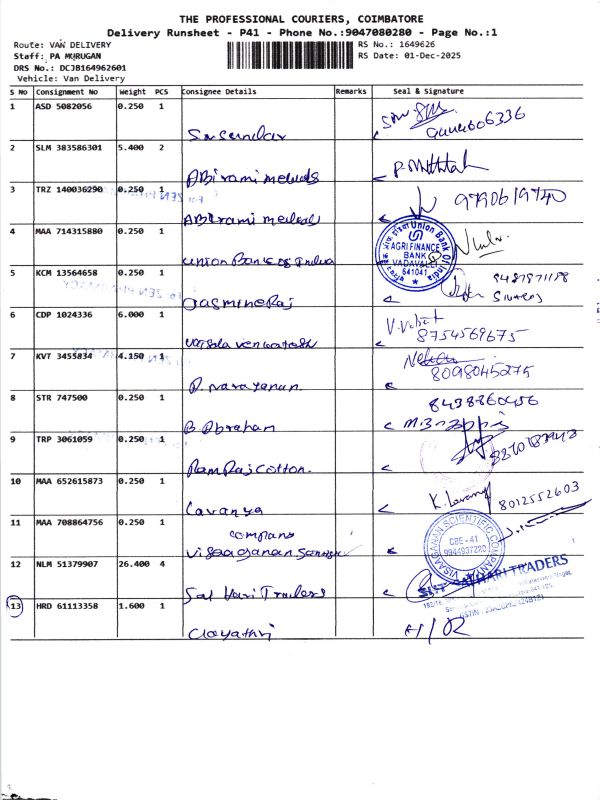 THE PROFESSIONAL COURIERS, COIMBATORE
Delivery Runsheet - P41 - Phone No.:9047080280 - Page No.:1
Route: VAN DELIVERY
Staff: PA MURUGAN
DRS No.: DCJB164962601
Vehicle: Van Delivery
RS No.: 1649626
RS Date: 01-Dec-2025
S No Consignment No Weight PCS Consignee Details Remarks Seal & Signature
1 ASD 5082056 0.250 1
2 SLM 383586301 5.400 2 ABirami medicals
3 TRZ 140036290 0.250 1 ABirami medical 9790619740
4 MAA 714315880 0.250 1 union Bank of India
Union Bank Of India
AGRI FINANCE
BANK
VADAVALLI
641041
5 KCM 13564658 0.250 1 JasmineRaj
6 CDP 1024336 6.000 1 8754569675
7 KVT 3455834 4.150 1 P. narayanan 8098045275
8 STR 747500 0.250 1 B. Abraham 8438860456
9 TRP 3061059 0.250 1 RamRaj cotton.
10 MAA 652615873 0.250 1 Lavanya 8012552603
11 MAA 708864756 0.250 1
VISAAGANAN SCIENTIFIC COMPANY
CBE-41
9944937280
12 NLM 51379907 26.400 4 Sai Hari Traders
SRI SAI HARI TRADERS
13 HRD 61113358 1.600 1 Gayathri